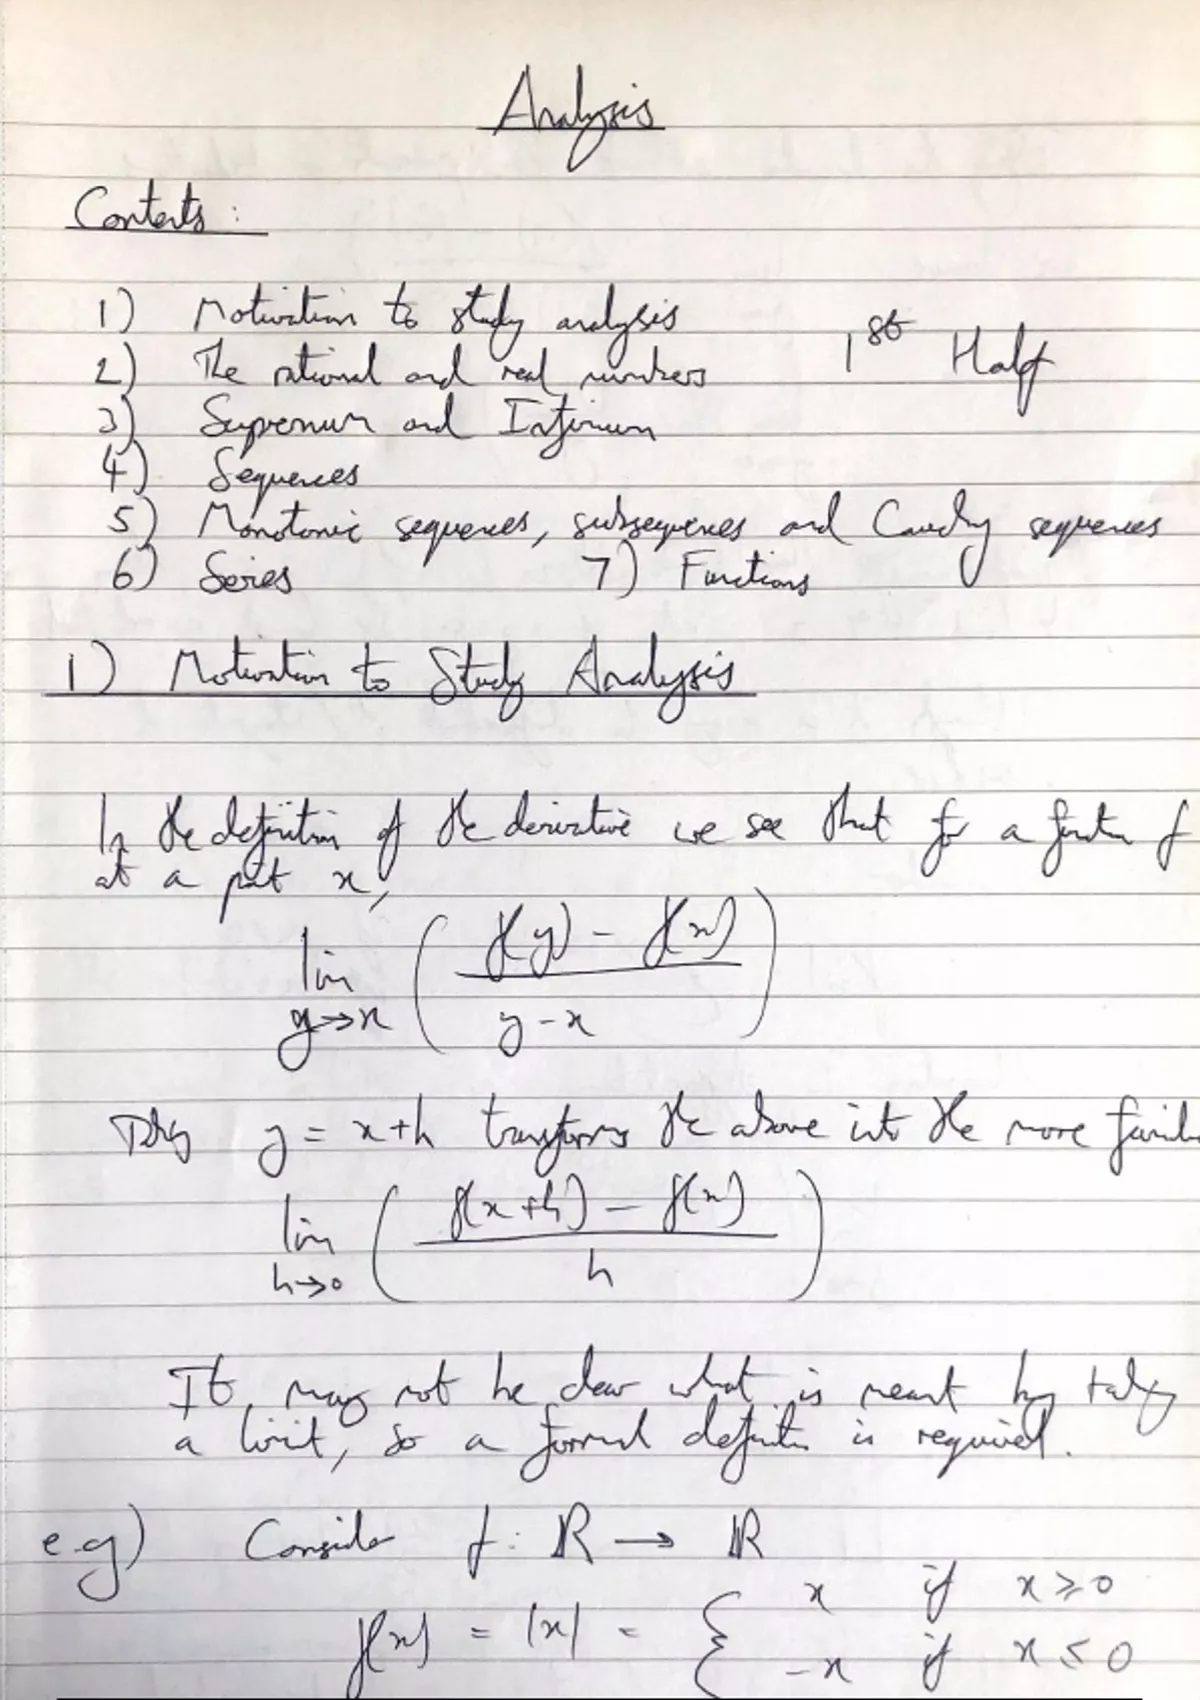 Analysis
Contents:
1) Motivation to study analysis
2) The rational and real numbers
1st Half
3) Supremum and Infimum
4) Sequences
5) Monotonic sequences, subsequences and Cauchy sequences
6) Series 7) Functions
1) Motivation to Study Analysis
In the definition of the derivative we see that for a function f
at a point x,
lim y→x ( (f(y) - f(x)) / (y-x) )
Taking y = x+h transforms the above into the more famili
lim h→0 ( (f(x+h) - f(x)) / h )
It may not be clear what is meant by taking
a limit, so a formal definition is required.
e.g) Consider f: ℝ → ℝ
f(x) = |x| = { x if x ≥ 0
-x if x ≤ 0